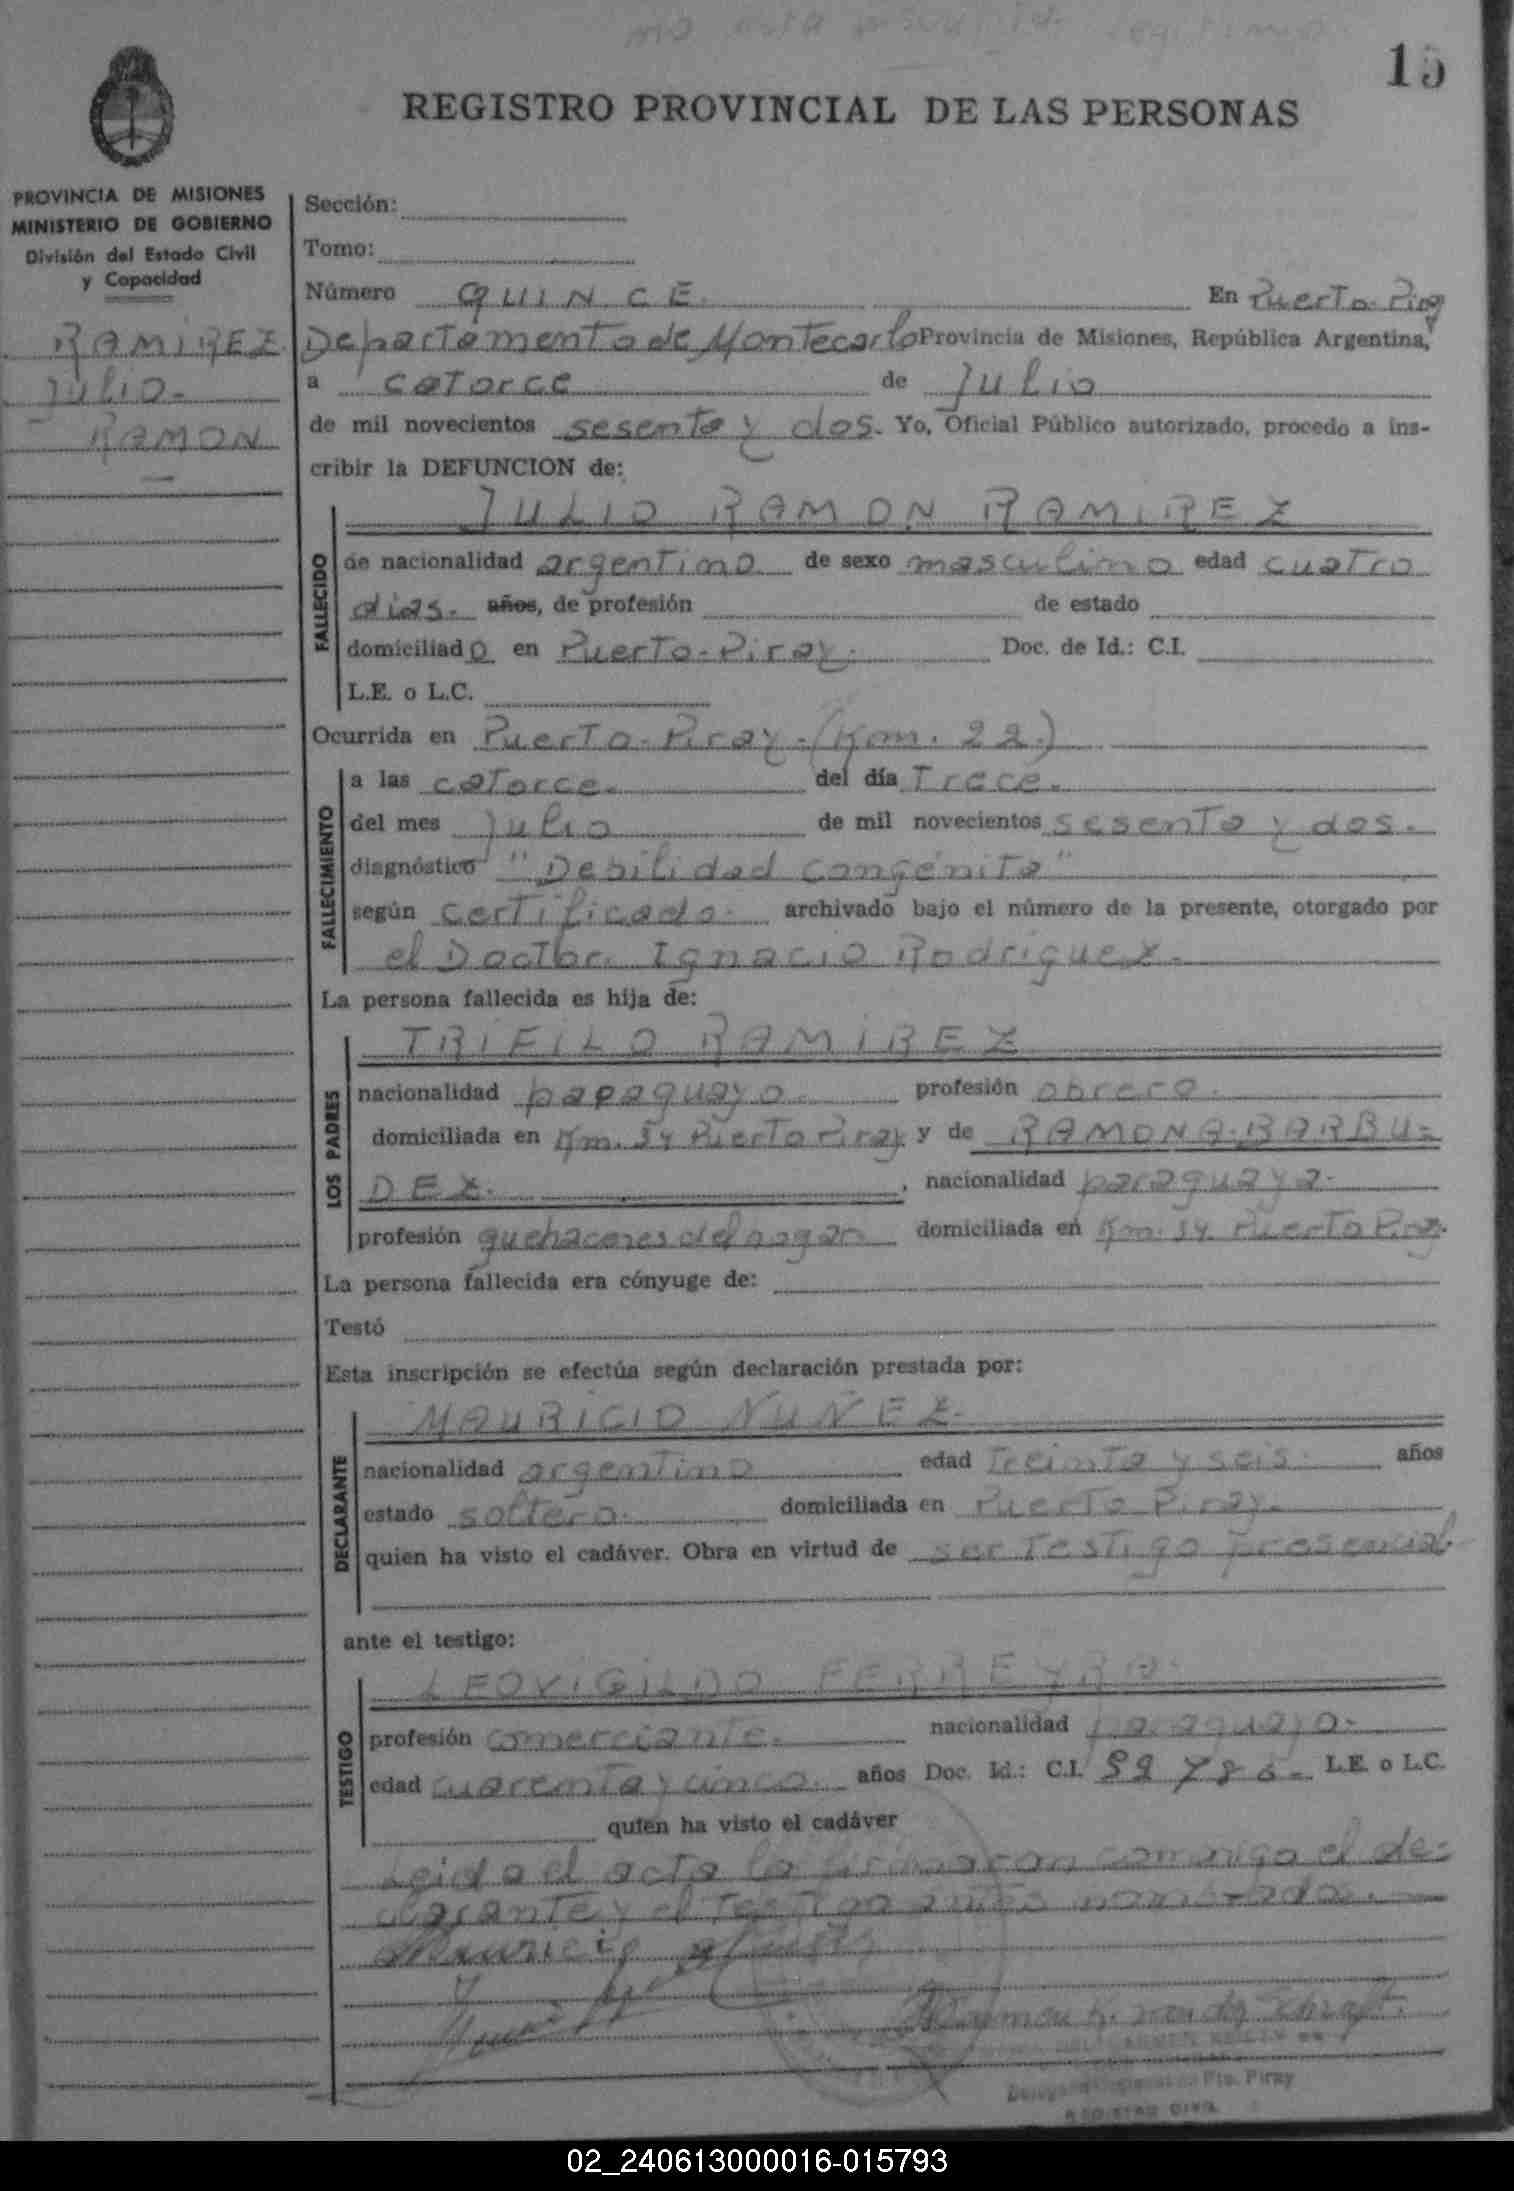 no esta
15
REGISTRO PROVINCIAL DE LAS PERSONAS
PROVINCIA DE MISIONES
MINISTERIO DE GOBIERNO
División del Estado Civil
y Capacidad
RAMIREZ
JULIO-
RAMON
Sección:
Tomo:
Número QUINCE. En Puerto Piray
Departamento de Montecarlo Provincia de Misiones, República Argentina,
a catorce de Julio
de mil novecientos sesenta y dos. Yo, Oficial Público autorizado, procedo a ins-
cribir la DEFUNCION de:
JULIO RAMON RAMIREZ
FALLECIDO
de nacionalidad argentino de sexo masculino edad cuatro
dias. años, de profesión de estado
domiciliado en Puerto-Piray. Doc. de Id.: C.I.
L.E. o L.C.
Ocurrida en Puerto-Piray-(Km. 22.)
FALLECIMIENTO
a las catorce. del día Trece.
del mes Julio de mil novecientos sesenta y dos.
diagnóstico "Debilidad congénita"
según certificado. archivado bajo el número de la presente, otorgado por
el Doctor Ignacio Rodriguez.
La persona fallecida es hija de:
TRIFILO RAMIREZ
LOS PADRES
nacionalidad paraguayo. profesión obrero.
domiciliada en Km. 34 Puerto Piray y de RAMONA BARBU-
DEZ. , nacionalidad paraguaya-
profesión quehaceres del hogar domiciliada en Km. 34 Puerto Piray.
La persona fallecida era cónyuge de:
Testó
Esta inscripción se efectúa según declaración prestada por:
MAURICIO NUÑEZ.
DECLARANTE
nacionalidad argentino edad Treinta y seis. años
estado soltero. domiciliada en Puerto Piray.
quien ha visto el cadáver. Obra en virtud de ser Testigo presencial.
ante el testigo:
LEOVIGILDO FERREYRA.
TESTIGO
profesión comerciante. nacionalidad paraguayo-
edad cuarenta y cinco. años Doc. Id.: C.I. L.E. o L.C.
quien ha visto el cadáver
Leida el acta la firmaran conmigo el de-
clarante y el Testigo antes nombrados.
Mauricio
Pto. Piray
REGISTRO CIVIL
02_240613000016-015793